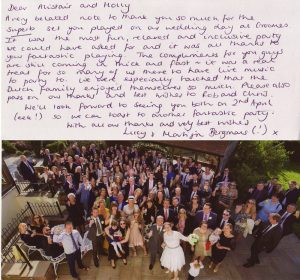 Dear Alistair and Molly
A very belated note to thank you so much for the
superb set you played on our wedding day at Croomes.
It was the most fun, relaxed and inclusive party
we could have asked for and it was all thanks to
your fantastic playing. The compliments for you guys
are still coming in thick and fast - it was a real
treat for so many of us there to have live music
to party to. We were especially touched that the
Dutch family enjoyed themselves so much. Please also
pass on our thanks and best wishes to Rob and Chris.
We'll look forward to seeing you both on 2nd April
(eek!) so we can toast to another fantastic party.
With all our thanks and very best wishes
Lucy & Bergmans (!) x